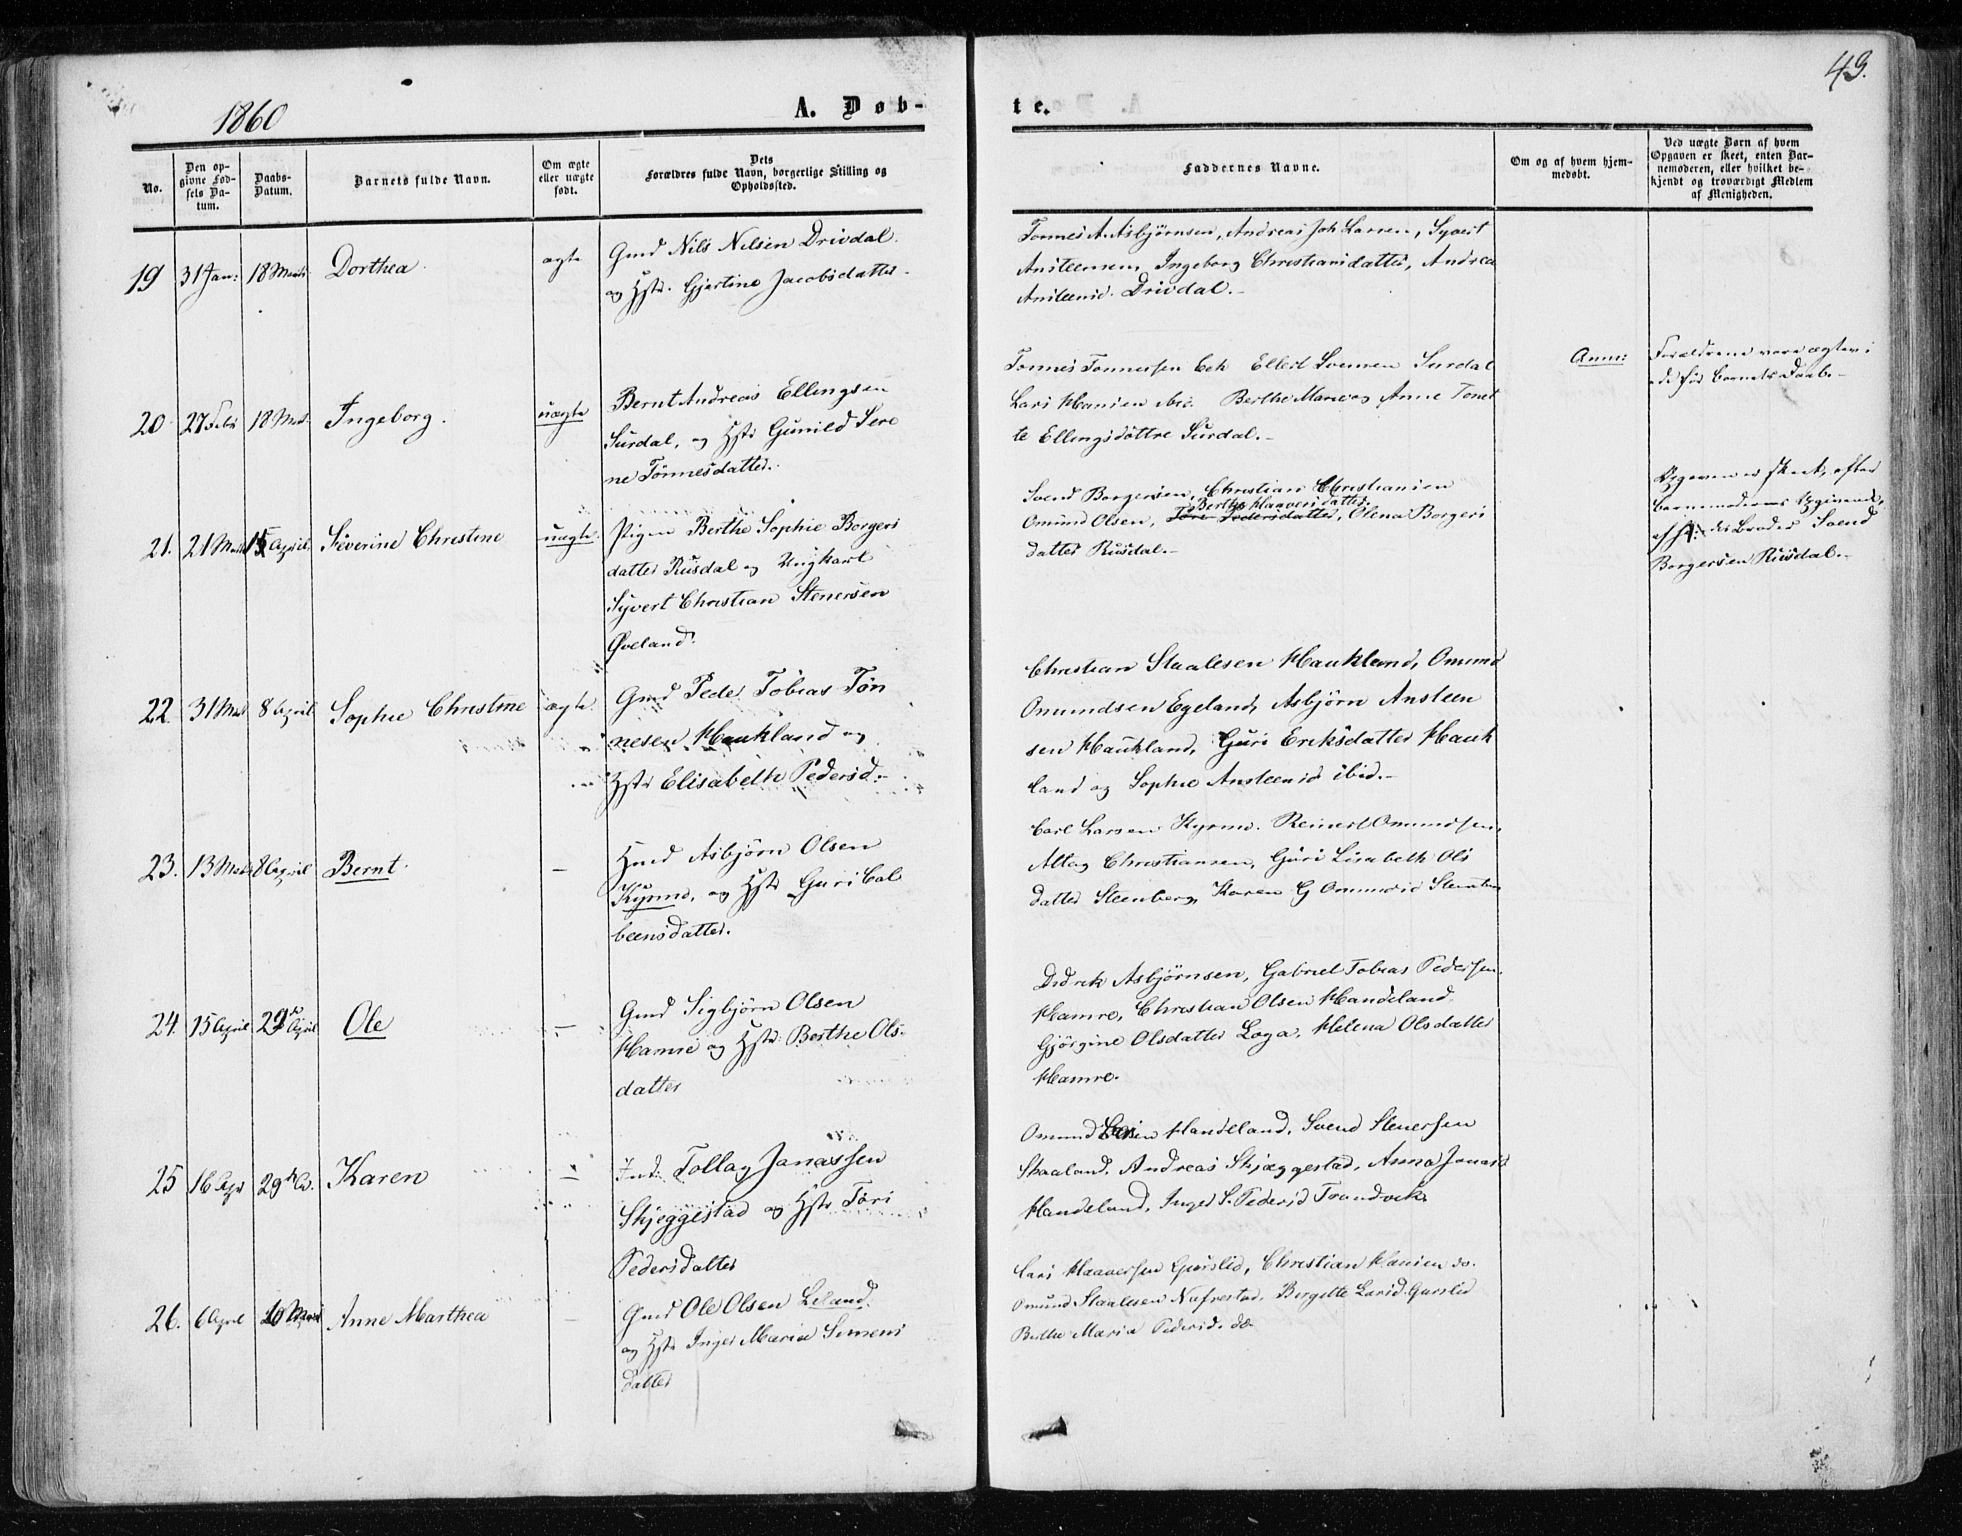 1860
A. Døb-
te.
43.
No.
Den op-
givne Fød-
sels Da-
tum.
Daabs-
Datum.
Barnets fulde Navn.
Om ægte
eller uægte
født.
Dets
Forældres fulde Navn, borgerlige Stilling og
Opholdssted.
Faddernes Navne.
Om og af hvem hjem-
medøbt.
Ved uægte Børn af hvem
Opgaven er skeet, enten Bar-
nemoderen, eller hvilket be-
kjendt og troværdigt Medlem
af Menigheden.
19 31 Jan: 18 Marts Dorthea. ægte
Gmd Nils Nilsen Drivdal.
og Hstr. Gjertine Jacobsdatter
Tonnes A. Asbjørnsen, Andreas Joh Larsen, Syvert
Ansteensen, Ingeborg Christiansdatter, Andrea
Ansteensd. Drivdal.-
20 27 Febr 18 Mrt. Ingeborg. uægte
Bernt Andreas Ellingsen
Surdal, og Hstr Gunild Sere
ne Tönnesdatter.
Tonnes Tonnessen Eek Ellert Svensen Surdal
Lars Hansen ibid. Berthe Marie og Anne Tonet
te Ellingsdöttre Surdal.-
Anm: Forældrene vare ægtevi
ede før barnets Daab.-
21. 21 Marts 15 April. Severine Christine uægte.
Pigen Berthe Sophie Borgers
datter Rusdal og Ungkarl
Syvert Christian Stenersen
Øveland.
Svend Borgersen, Christian Christiansen
Berthe Haaversdatter
Omund Olsen, Tore Pedersdatter, Olena Borgers
datter Rusdal.-
Opgaven er skeet, efter
barnemoderens Opgivende,
af hendes Broder Svend
Borgersen Rusdal.-
22 31 Mrt 8 April Sophie Christine ægte.
Gmd Peder Tobias Tön
nesen Haukland og
Hstr Elisabeth Pedersd.-
Christian Staalesen Haukland, Omund
Omundsen Egeland, Asbjörn Ansteen
sen Haukland, Guri Eriksdatter Hauk
land og Sophie Ansteensd ibid.-
23. 13 Mrts 8 April Bernt. -
Hmd Asbjörn Olsen
Kynno, og Hstr Guri Col
beensdatter.
Carl Larsen Kynno. Reinert Omundsen,
Allag Christiansen, Guri Lisabeth Ols
datter Steenberg, Karen G Omundsd Steenberg
24. 15 April 29de April Ole -
Gmd Sigbjörn Olsen
Hamre og Hstr: Berthe Ols-
datter
Didrik Asbjörnsen, Gabriel Tobias Pedersen.
Hamre, Christian Olsen Handeland.
Gjörgine Olsdatter Loga, Helena Olsdatter
Hamre.
25 16 Apr 29de Karen -
Ind: Tollag Janassen
Skjeggestad og Hstr Tori
Pedersdatter
Omund Larsen Handeland, Svend Stenersen
Skaaland, Andreas Skjæggestad, Anna Jonasd
Handeland, Inger S. Pedersd Trandvik
26. 6 April 20 Anne Marthea -
Gmd Ole Olsen Leland.
og Hstr Inger Maria Simens
datter
Lars Haaversen Gurslid, Christian Hansen do.
Omund Staalesen Nufrestad. Birgitte Larsd. Gurslid
Berthe Maria Pedersd. do